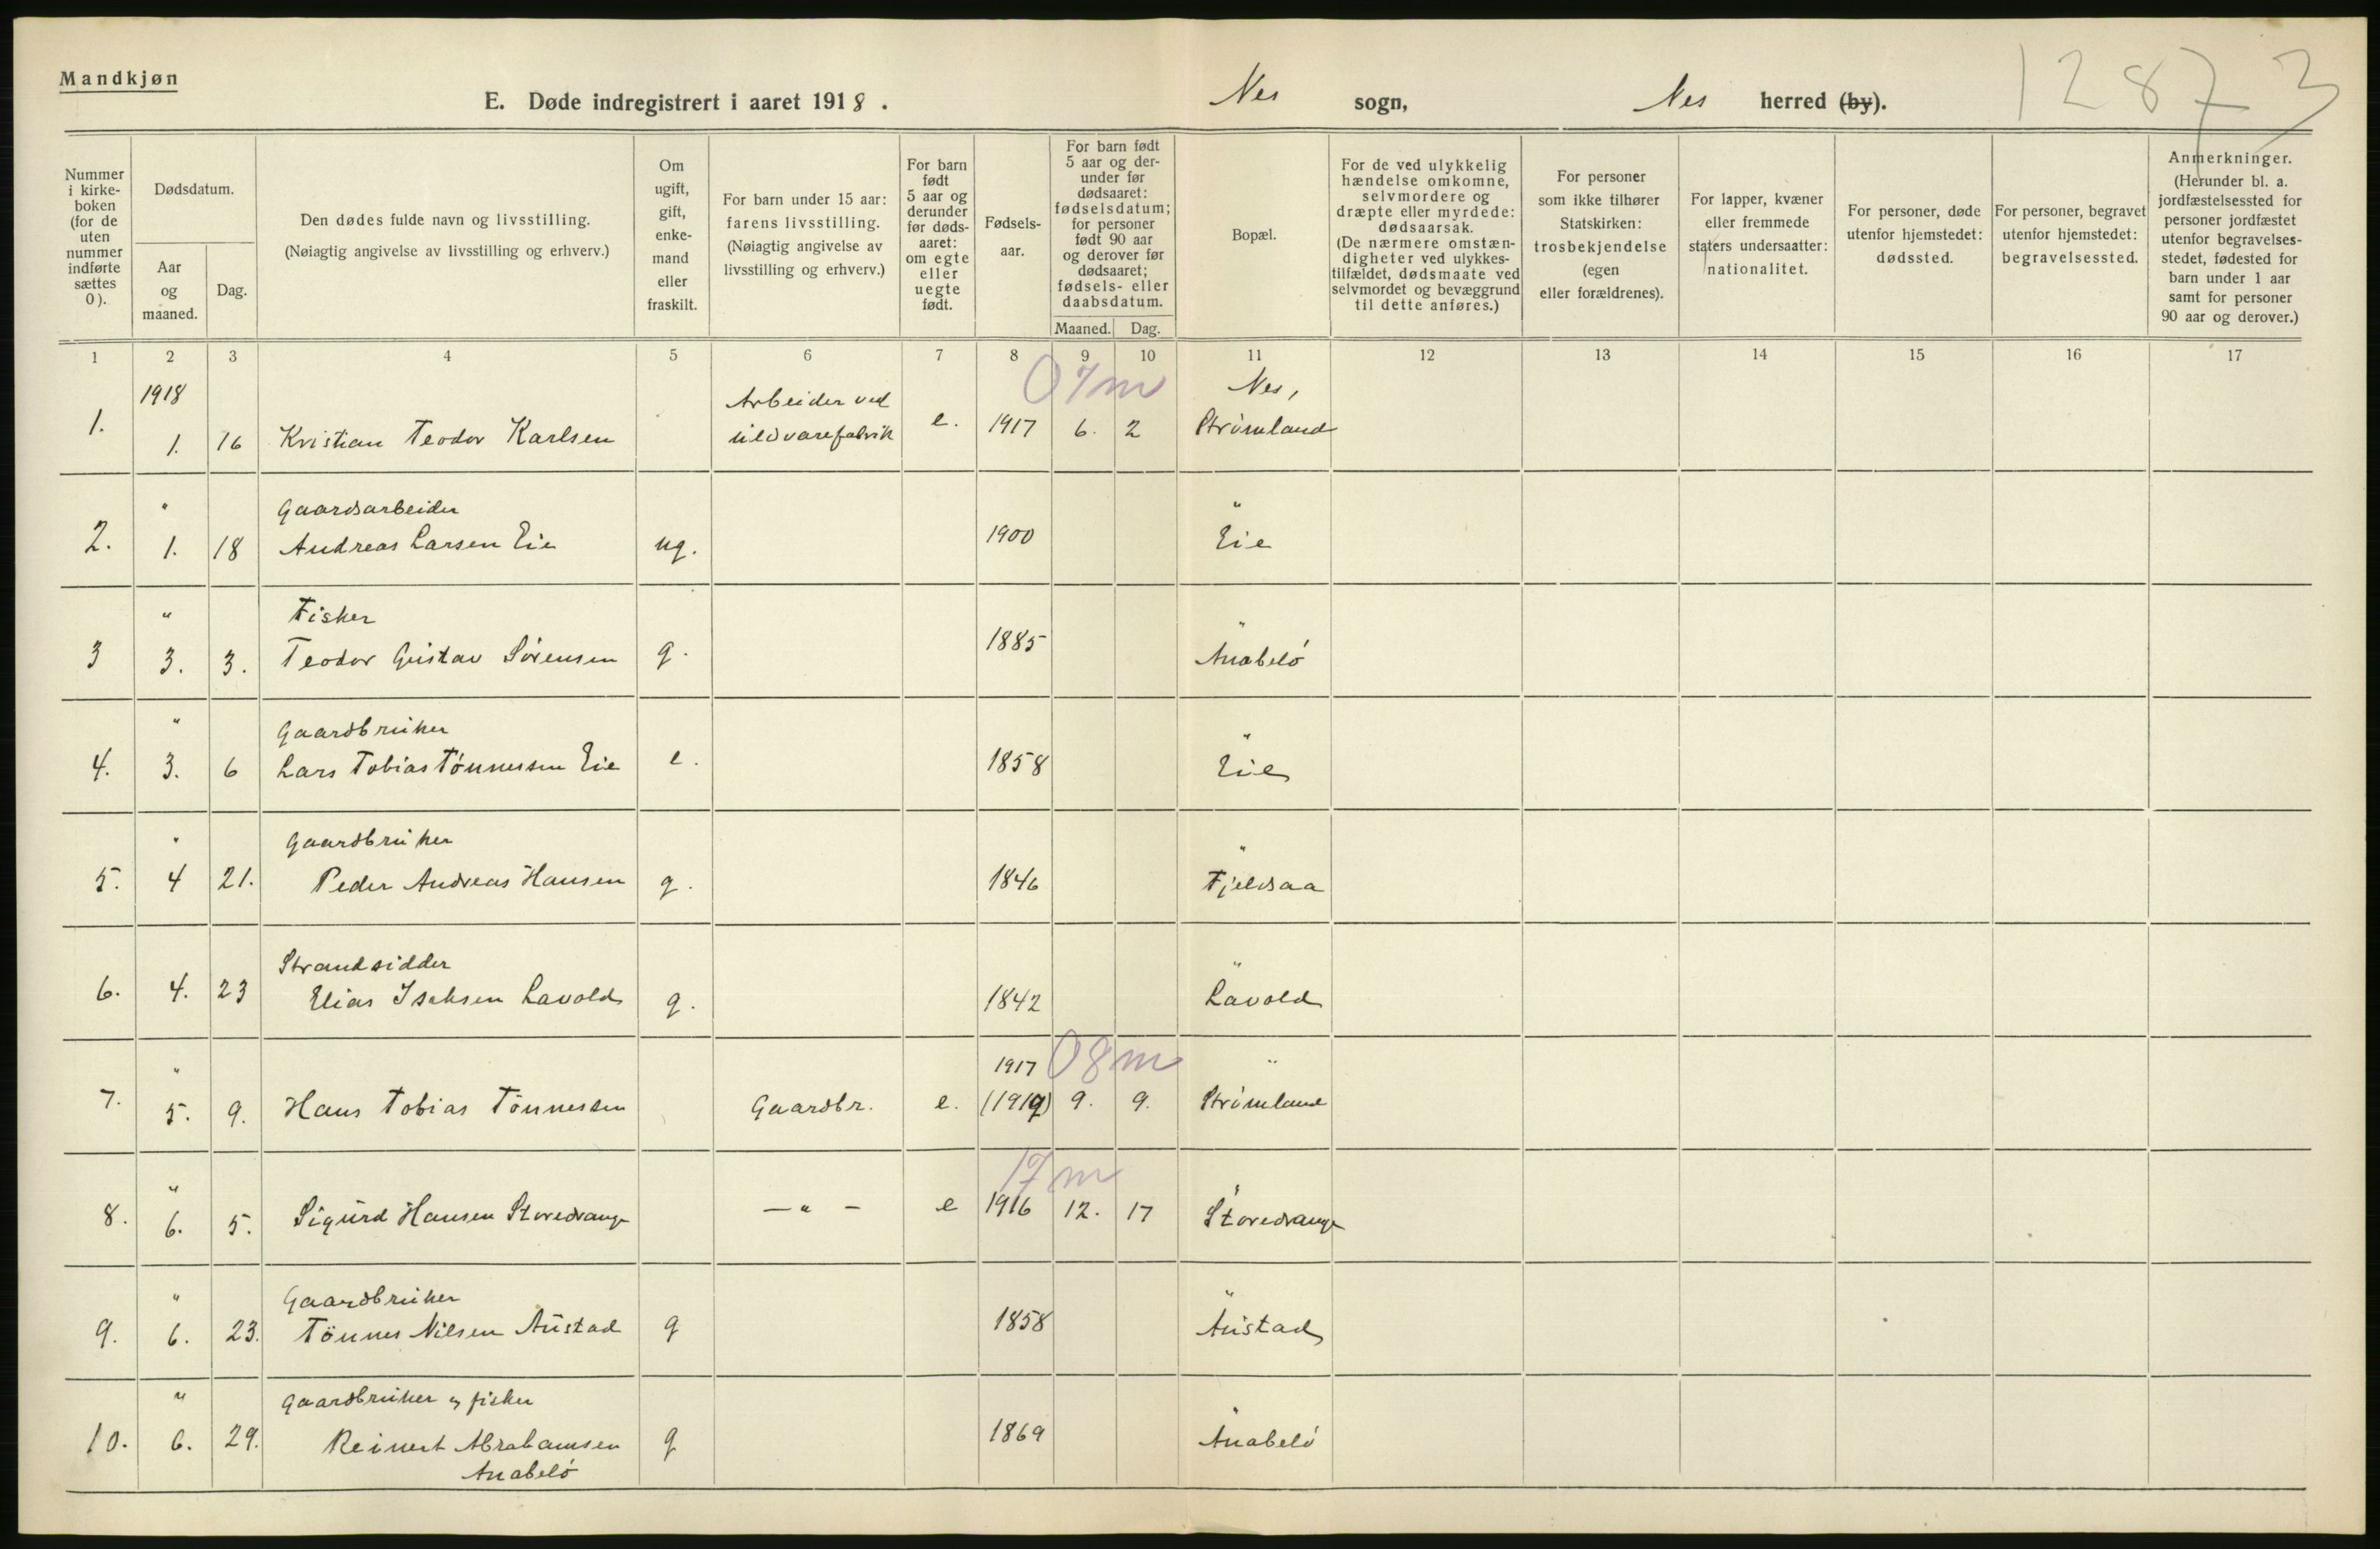 Mandkjøn
E. Døde indregistrert i aaret 1918.
Nes sogn,
Nes herred (by).
12873
Nummer i kirke-boken (for de uten nummer indførte sættes 0).
Dødsdatum.
Aar og maaned.
Dag.
Den dødes fulde navn og livsstilling.
(Nøiagtig angivelse av livsstilling og erhverv.)
Om ugift, gift, enke-mand eller fraskilt.
For barn under 15 aar: farens livsstilling.
(Nøiagtig angivelse av livsstilling og erhverv.)
For barn født 5 aar og derunder før døds-aaret: om egte eller uegte født.
Fødsels-aar.
For barn født 5 aar og der-under før dødsaaret: fødselsdatum; for personer født 90 aar og derover før dødsaaret; fødsels- eller daabsdatum.
Maaned. Dag.
Bopæl.
For de ved ulykkelig hændelse omkomne, selvmordere og dræpte eller myrdede: dødsaarsak.
(De nærmere omstæn-digheter ved ulykkes-tilfældet, dødsmaate ved selvmordet og bevæggrund til dette anføres.)
For personer som ikke tilhører Statskirken: trosbekjendelse (egen eller forældrenes).
For lapper, kvæner eller fremmede staters undersaatter: nationalitet.
For personer, døde utenfor hjemstedet: dødssted.
For personer, begravet utenfor hjemstedet: begravelsessted.
Anmerkninger.
(Herunder bl. a. jordfæstelsessted for personer jordfæstet utenfor begravelses-stedet, fødested for barn under 1 aar samt for personer 90 aar og derover.)
1 2 3 4 5 6 7 8 9 10 11 12 13 14 15 16 17
1918 Arbeider ved 07m Nes,
1. 1. 16 Kristian Teodor Karlsen uldvarefabrik e. 1917 6. 2 Strømland
" Gaardsarbeider "
2. 1. 18 Andreas Larsen Eie ug. 1900 Eie
" Fisker "
3 3. 3. Teodor Gustav Sørensen g. 1885 Anabelø
" Gaardbruker "
4. 3. 6 Lars Tobias Tønnessen Eie e. 1858 Eie
" Gaardbruker "
5. 4 21. Peder Andreas Hansen g. 1846 Fjeldsaa
Strandsidder "
6. 4. 23 Elias Isaksen Lavold g. 1842 Lavold
" 1917 08m "
7. 5. 9. Hans Tobias Tønnessen Gaardbr. e. (1919) 9. 9. Strømland
" 17m "
8. 6. 5. Sigurd Hansen Storedrange — " — e 1916 12. 17 Storedrange
" Gaardbruker "
9. 6. 23. Tønnes Nilsen Austad g 1858 Austad
" Gaardbruker og fisker "
10. 6. 29. Reinert Abrahamsen g 1869 Anabelø
Anabelø